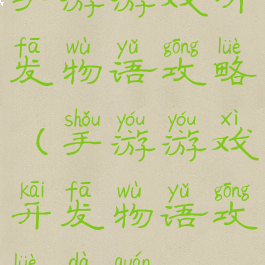 手游游戏开
fā wù yǔ gōng lüè
发物语攻略
shǒu yóu yóu xì
(手游游戏
kāi fā wù yǔ gōng
开发物语攻
lüè dà quán